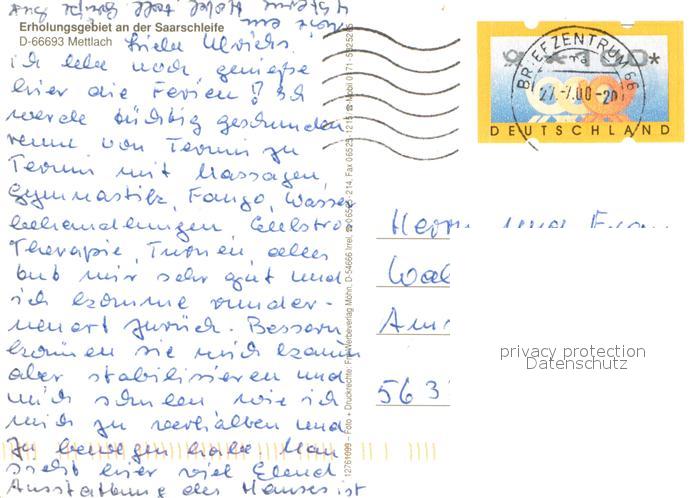 Erholungsgebiet an der Saarschleife
D-66693 Mettlach
Liebe Ulrichs,
ich lebe noch genieße
hier die Ferien!! Ich
werde tüchtig geschunden
renne von Termin zu
Termin mit Massagen,
Gymnastik, Fango, Wasser
behandlungen, Elektro
Therapie, Turnen, alles
tut mir sehr gut und
ich komme runder-
neuert zurück. Bessern
können sie mich kaum
aber stabilisieren und
mich schulen wie ich
mich zu verhalten und
zu bewegen habe. Man
sieht hier viel Elend
Ausstattung des Hauses ist
BRIEFZENTRUM 66
27.-7.00-20
DEUTSCHLAND
Herrn und Frau
563
privacy protection
Datenschutz